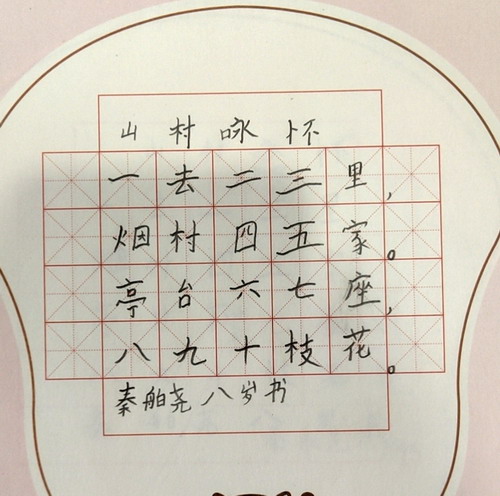 山村咏怀
一去二三里,
烟村四五家。
亭台六七座,
八九十枝花。
秦舶尧 八岁书